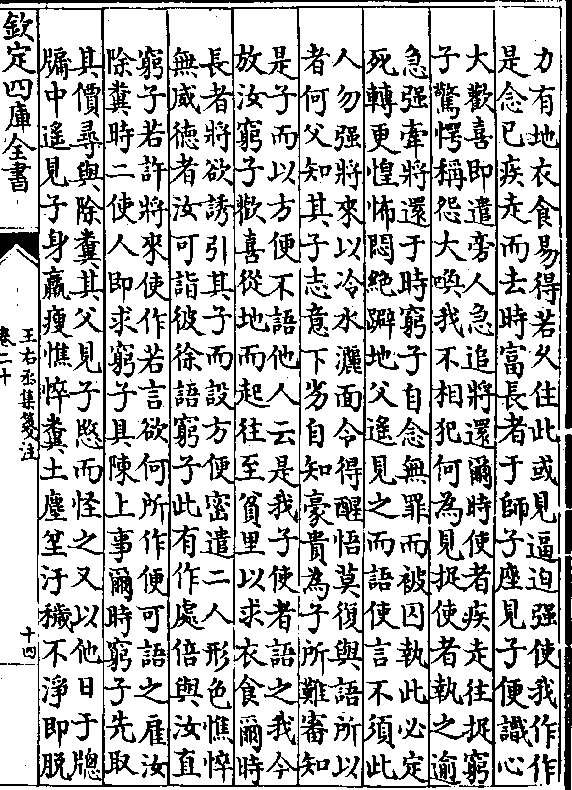 力有地衣食易得若久住此或見逼迫强使我作作
是念已疾走而去時富長者于師子座見子便識心
大歡喜即遣旁人急追將還爾時使者疾走往捉窮
子驚愕稱怨大喚我不相犯何為見捉使者執之逾
急强牽將還于時窮子自念無罪而被囚執此必定
死轉更惶怖悶絶躃地父遙見之而語使言不須此
人勿强將來以冷水灑面令得醒悟莫復與語所以
者何父知其子志意下劣自知豪貴為子所難審知
是子而以方便不語他人云是我子使者語之我今
放汝窮子歡喜從地而起往至貧里以求衣食爾時
長者將欲誘引其子而設方便密遣二人形色憔悴
無威德者汝可詣彼徐語窮子此有作處倍與汝直
窮子若許將來使作若言欲何所作便可語之雇汝
除糞時二使人即求窮子具陳上事爾時窮子先取
其價尋與除糞其父見子愍而怪之又以他日于牕
牖中遙見子身羸瘦憔悴糞土塵坌汙穢不淨即脱
欽定四庫全書
王右丞集箋注
卷二十
十四